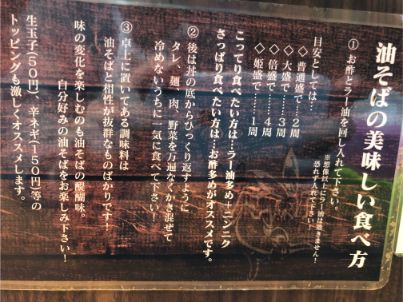 油そばの美味しい食べ方
① お酢とラー油を回し入れて下さい。
※想像以上にラー油は辛くありません！
恐れず入れて下さい
目安としては…
◇普通盛で……2周
◇大盛で………3周
◇倍盛で………4周
◇姫盛で………1周
こってり食べたい方は…ラー油多め＋ニンニク
さっぱり食べたい方は…お酢多めがオススメです。
② 後は丼の底からひっくり返すように
タレ、麺、肉、野菜を万遍なくかき混ぜて
冷めないうちに一気に食べて下さい！
③ 卓上に置いてある調味料は
油そばと相性が抜群なものばかりです！
味の変化を楽しむのも油そばの醍醐味。
自分好みの油そばをお楽しみ下さい！
生玉子（50円）、辛ネギ（150円）等の
トッピングも激しくオススメします。